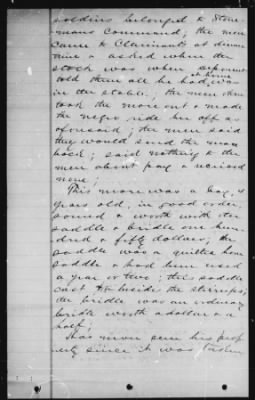 soldiers belonged to Stone-
mans Command; the men
came to Claimants at dinner
time & asked where the
stock was when deponent
told them all he had at home was
in the stable. the men then
took the mare out & made
the negro ride her off as
aforesaid; the men said
they would send the man
back; said nothing to the
men about pay & received
none.
This mare was a bay, 4
years old, in good order,
sound & worth with the
saddle & bridle one hun-
dred & fifty dollars; the
saddle was a quilted
saddle & had been used
a year or two; this saddle
cost besides the stirrups;
the bridle was an ordinary
bridle worth a dollar & a
half;
Has never seen his prop-
erty since it was taken